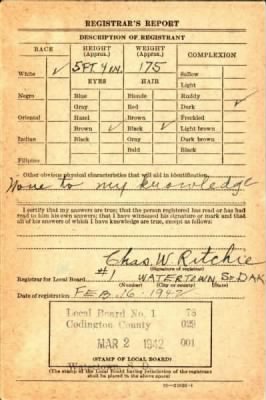 REGISTRAR'S REPORT
DESCRIPTION OF REGISTRANT
RACE HEIGHT (Approx.) WEIGHT (Approx.) COMPLEXION
White ✓ 5 FT. 4 IN. 175 Sallow
EYES HAIR Light
Negro Blue Blonde Ruddy
Gray Red Dark ✓
Oriental Hazel Brown Freckled
Brown ✓ Black ✓ Light brown
Indian Black Gray Dark brown
Bald Black
Filipino
Other obvious physical characteristics that will aid in identification
None to my knowledge
I certify that my answers are true; that the person registered has read or has had
read to him his own answers; that I have witnessed his signature or mark and that
all of his answers of which I have knowledge are true, except as follows:
Chas. W. Ritchie
(Signature of registrar)
Registrar for Local Board #1 WATERTOWN So DAK
(Number) (City or county) (State)
Date of registration FEB. 16. 1942
Local Board No. 1 78
Codington County 029
MAR 2 1942 001
Watertown S. D.
(STAMP OF LOCAL BOARD)
(The stamp of the Local Board having jurisdiction of the registrant
shall be placed in the above space)